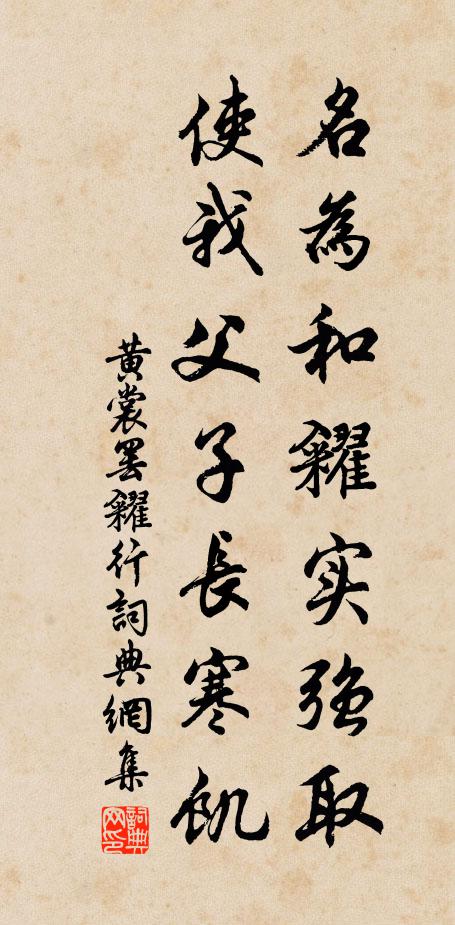 名為和糴实强取
使我父子長寒飢
黄裳罢糴行詞典網集
詞典网印